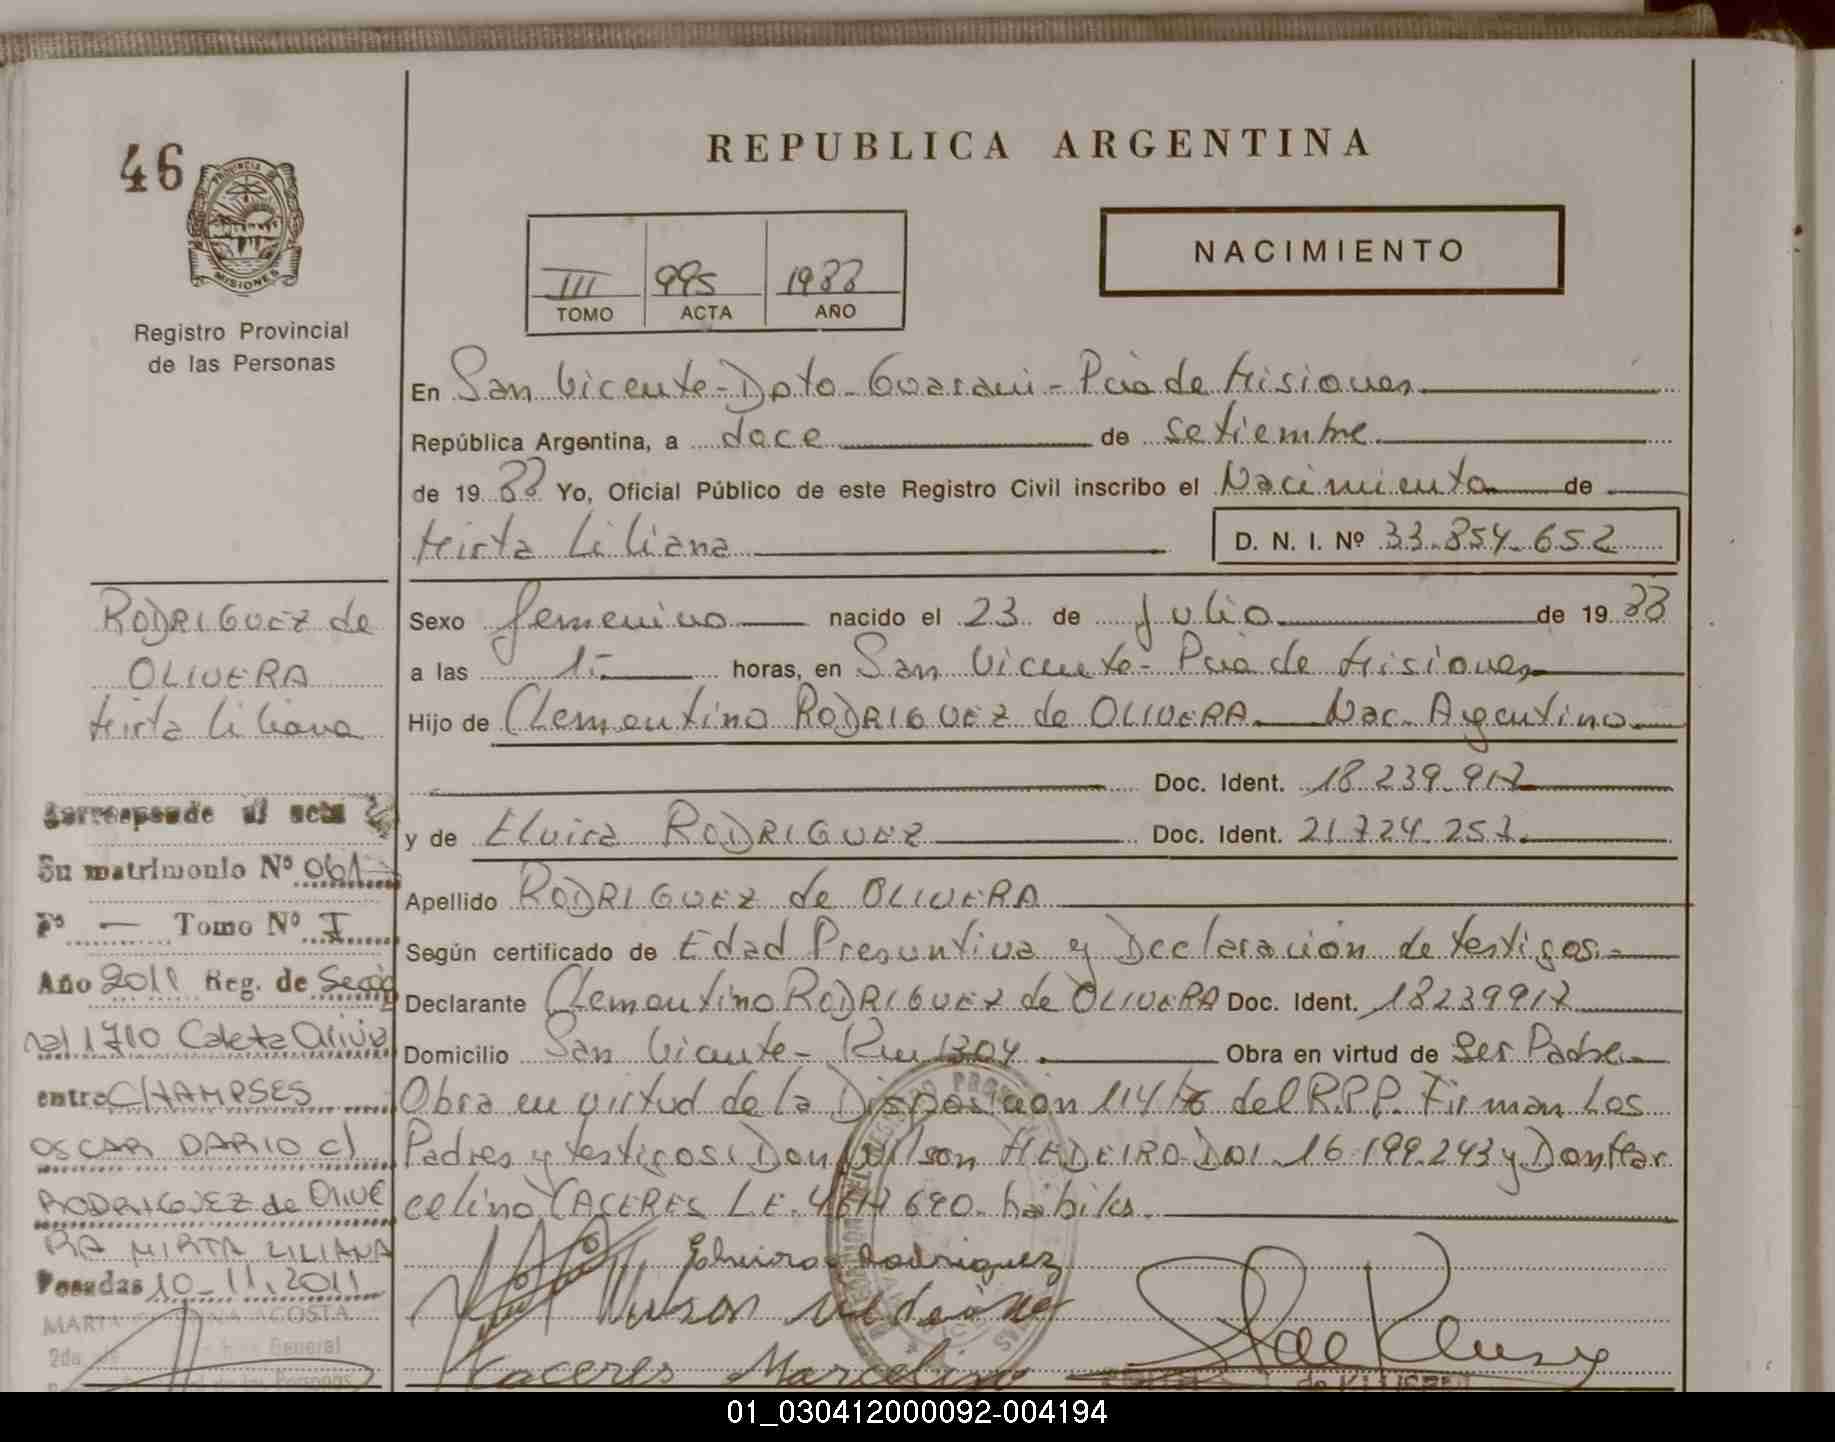 46
PROVINCIA DE
MISIONES
Registro Provincial
de las Personas
REPUBLICA ARGENTINA
III 995 1988
TOMO ACTA AÑO
NACIMIENTO
En San Vicente - Dpto - Guarani - Pcia de Misiones
República Argentina, a doce de setiembre
de 19 88 Yo, Oficial Público de este Registro Civil inscribo el Nacimiento de
Mirta Liliana D. N. I. Nº 33.854.652
Sexo femenino nacido el 23 de Julio de 19 88
a las 15 horas, en San Vicente - Pcia de Misiones
Hijo de Clementino RODRIGUEZ de OLIVERA Nac. Argentino
Doc. Ident. 18.239.917
y de Elvira RODRIGUEZ Doc. Ident. 21.724.257.
Apellido RODRIGUEZ de OLIVERA
Según certificado de Edad Presuntiva y Declaración de testigos.
Declarante Clementino RODRIGUEZ de OLIVERA Doc. Ident. 18239917
Domicilio San Vicente - Km 1304. Obra en virtud de Ser Padre
Obra en virtud de la Disposición 114/76 del R.P.P. Firman Los
Padres y testigos: Don Wilson MEDEIRO DNI. 16.199.243 y Don Mar
celino CACERES L.E. 4617690. habiles.
Elvira Rodriguez
Caceres Marcelino
RODRIGUEZ de
OLIVERA
Mirta Liliana
Corresponde al acta
Su matrimonio Nº 061
Fº — Tomo Nº I
Año 2011 Reg. de Seccio
nal 1710 Caleta Olivia
entre CHAMPSES
OSCAR DARIO c/
RODRIGUEZ de OLIVE
RA MIRTA LILIANA
Posadas 10-11-2011
ACOSTA
2da. General
01_030412000092-004194